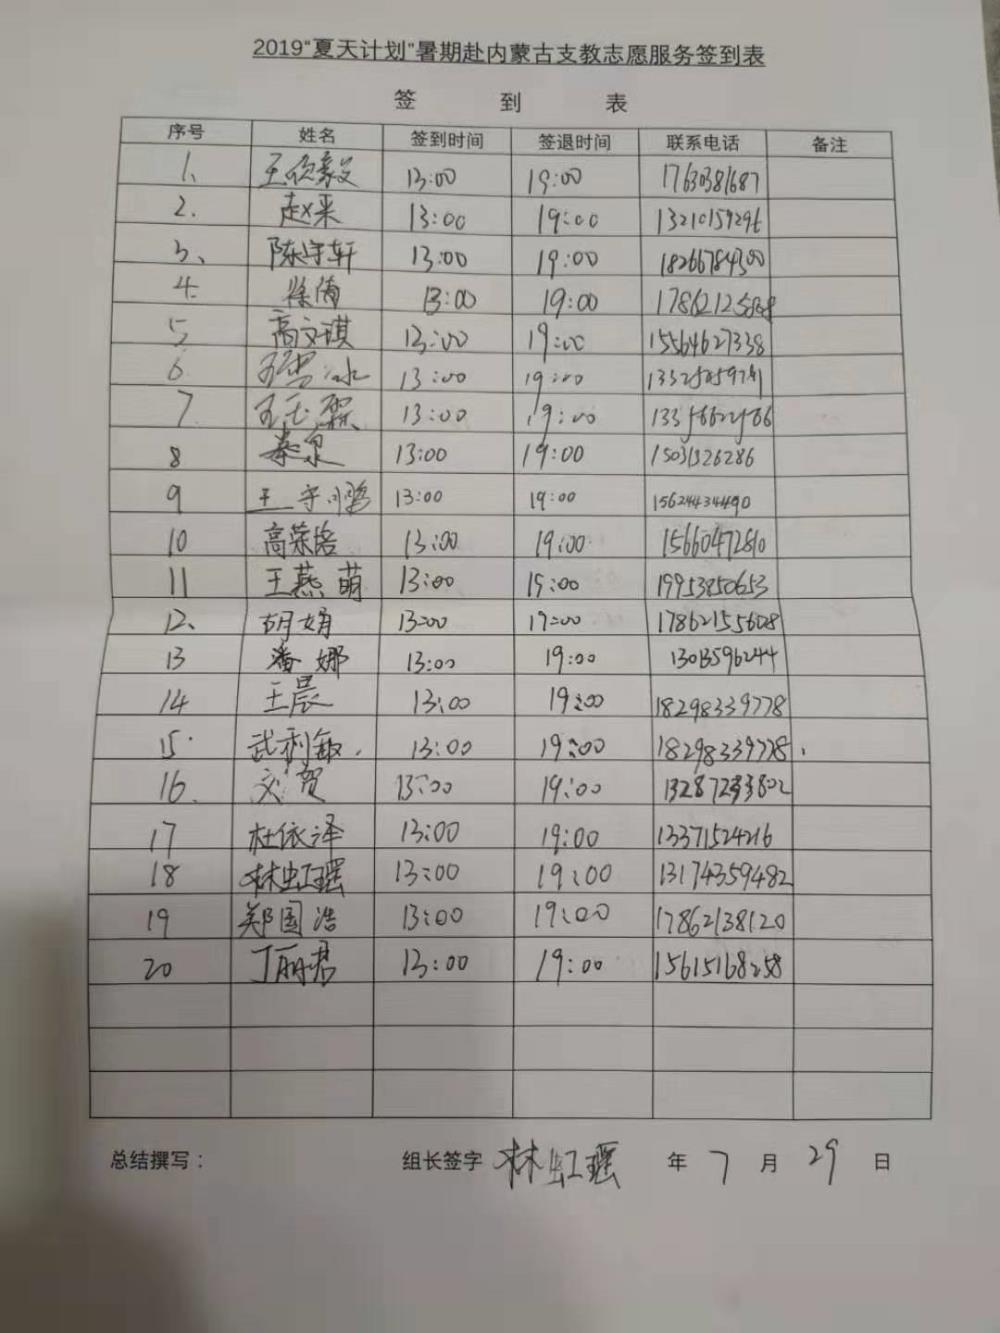 2019“夏天计划”暑期赴内蒙古支教志愿服务签到表
签 到 表
序号 姓名 签到时间 签退时间 联系电话 备注
1、 王欣毅 13:00 19:00 17630381687
2. 赵采 13:00 19:00 13210159296
3、 陈守轩 13:00 19:00 18266784300
4. 徐倩 13:00 19:00
5 高文琪 13:00 19:00 15564627338
6 冰 13:00 19:00
7. 王玉霖 13:00 19:00
8 秦泉 13:00 19:00 15031326286
9 王宇鹏 13:00 19:00 15624434490
10 高荣培 13:00 19:00 15660472810
11 王燕萌 13:00 19:00 19953850653
12、 胡娟 13:00 19:00 17862155608
13 潘娜 13:00 19:00 1303596244
14 王晨 13:00 19:00 18298339778
15. 武利敏. 13:00 19:00 18298339778.
16. 刘贺 13:00 19:00 13287233802
17 杜依泽 13:00 19:00 13371524216
18 林虹瑶 13:00 19:00 13174359482
19 郑国浩 13:00 19:00 17862138120
20 丁丽君 13:00 19:00 15615168258
总结撰写： 组长签字 林虹瑶 年 7 月 29 日